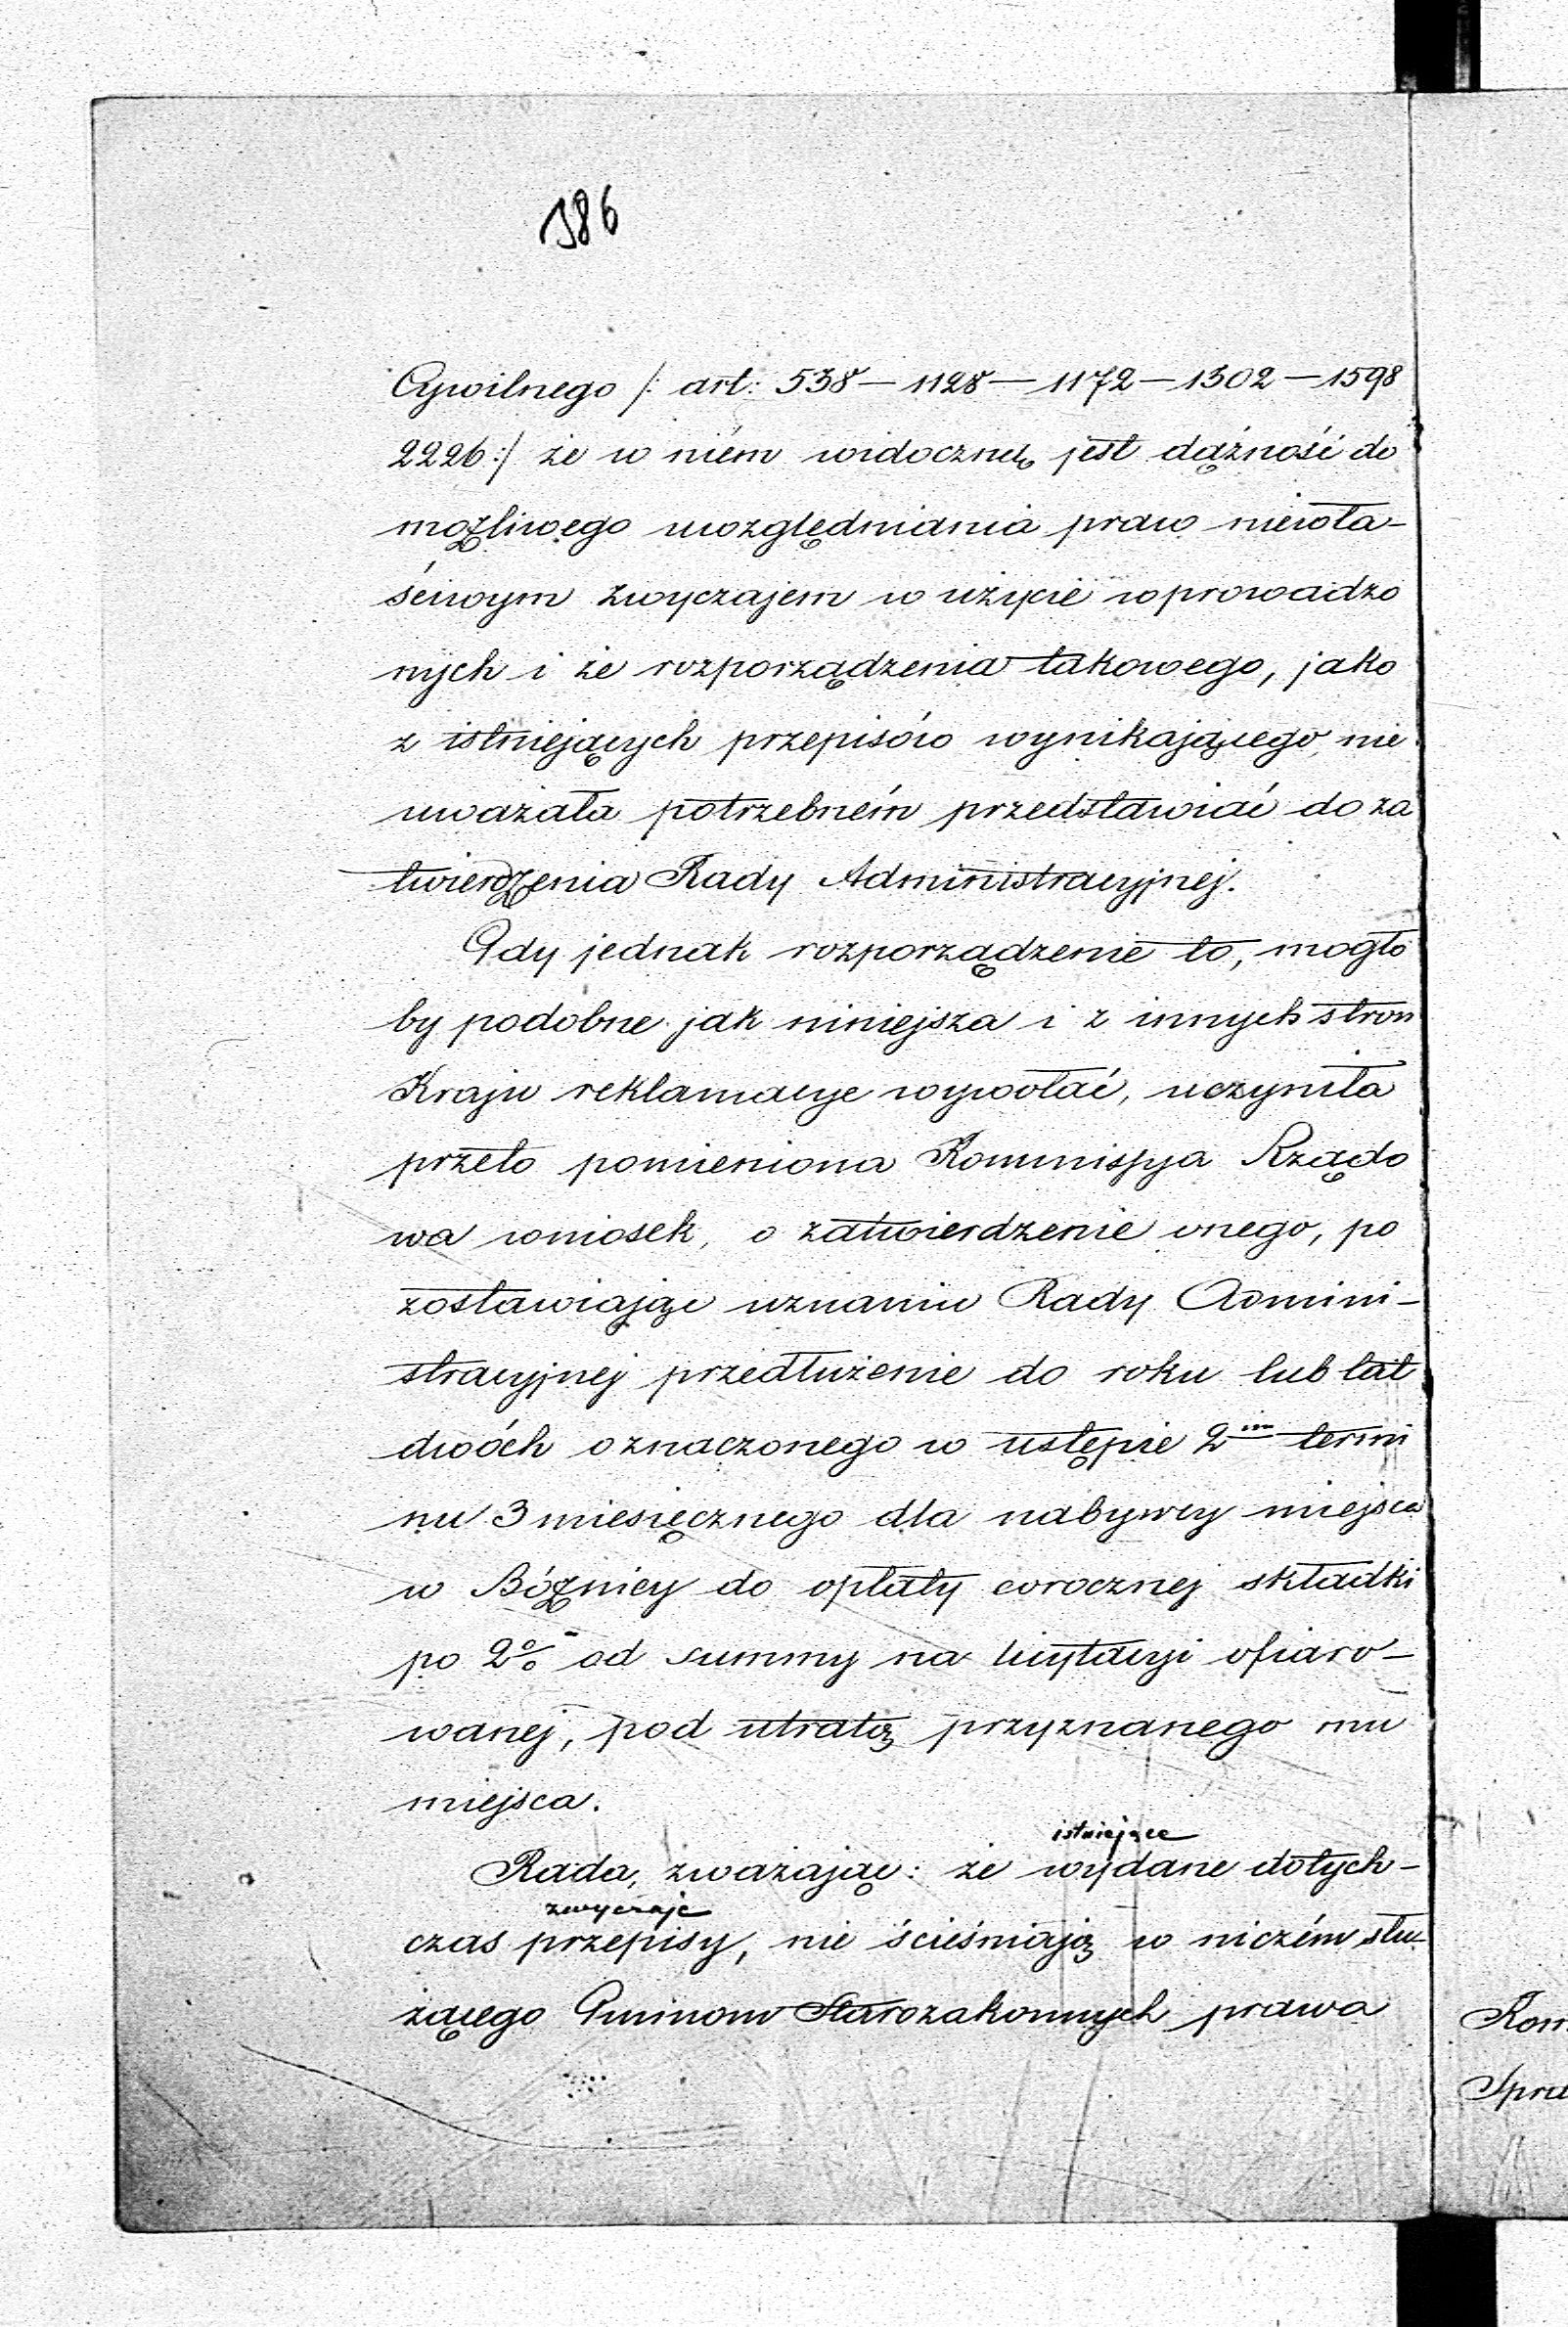 386
Cywilnego /: art: 538 — 1128 — 1172 — 1302 — 1598
2226:/ że w niém widoczną jest dążność do
możliwego uwzględniania praw niewła-
ściwym zwyczajem w użycie wprowadzo
nych i że rozporządzenia takowego, jako
z istniejących przepisów wynikającego, nie
uważała potrzebném przedstawiać do za
twierdzenia Rady Administracyjnej.
Gdy jednak rozporządzenie to, mogło
by podobne jak niniejsza i z innych stron
Kraju reklamacye wywołać, uczyniła
przeto pomieniona Kommissya Rządo
wa wniosek, o zatwierdzenie onego, po
zostawiając uznaniu Rady Admini-
stracyjnej przedłużenie do roku lub lat
dwóch oznaczonego w ustępie 2m termi
nu 3 miesięcznego dla nabywcy miejsca
w Bóżnicy do opłaty corocznej składki
po 2% od summy na licytacyi ofiaro-
wanej, pod utratą przyznanego mu
miejsca.
istniejące
Rada, zważając: że wydane dotych-
zwyczaje
czas przepisy, nie ścieśniają w niczém słu-
żącego Gminom Starozakonnych prawa
Kom
Spra